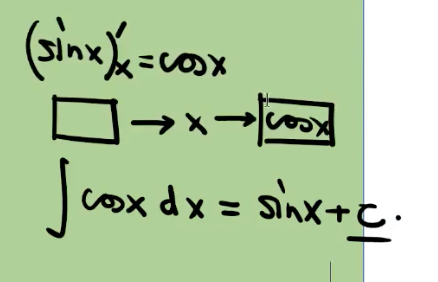 (sinx)'ₓ = cosx
□ → x → cosx
∫ cosx dx = sinx + c.